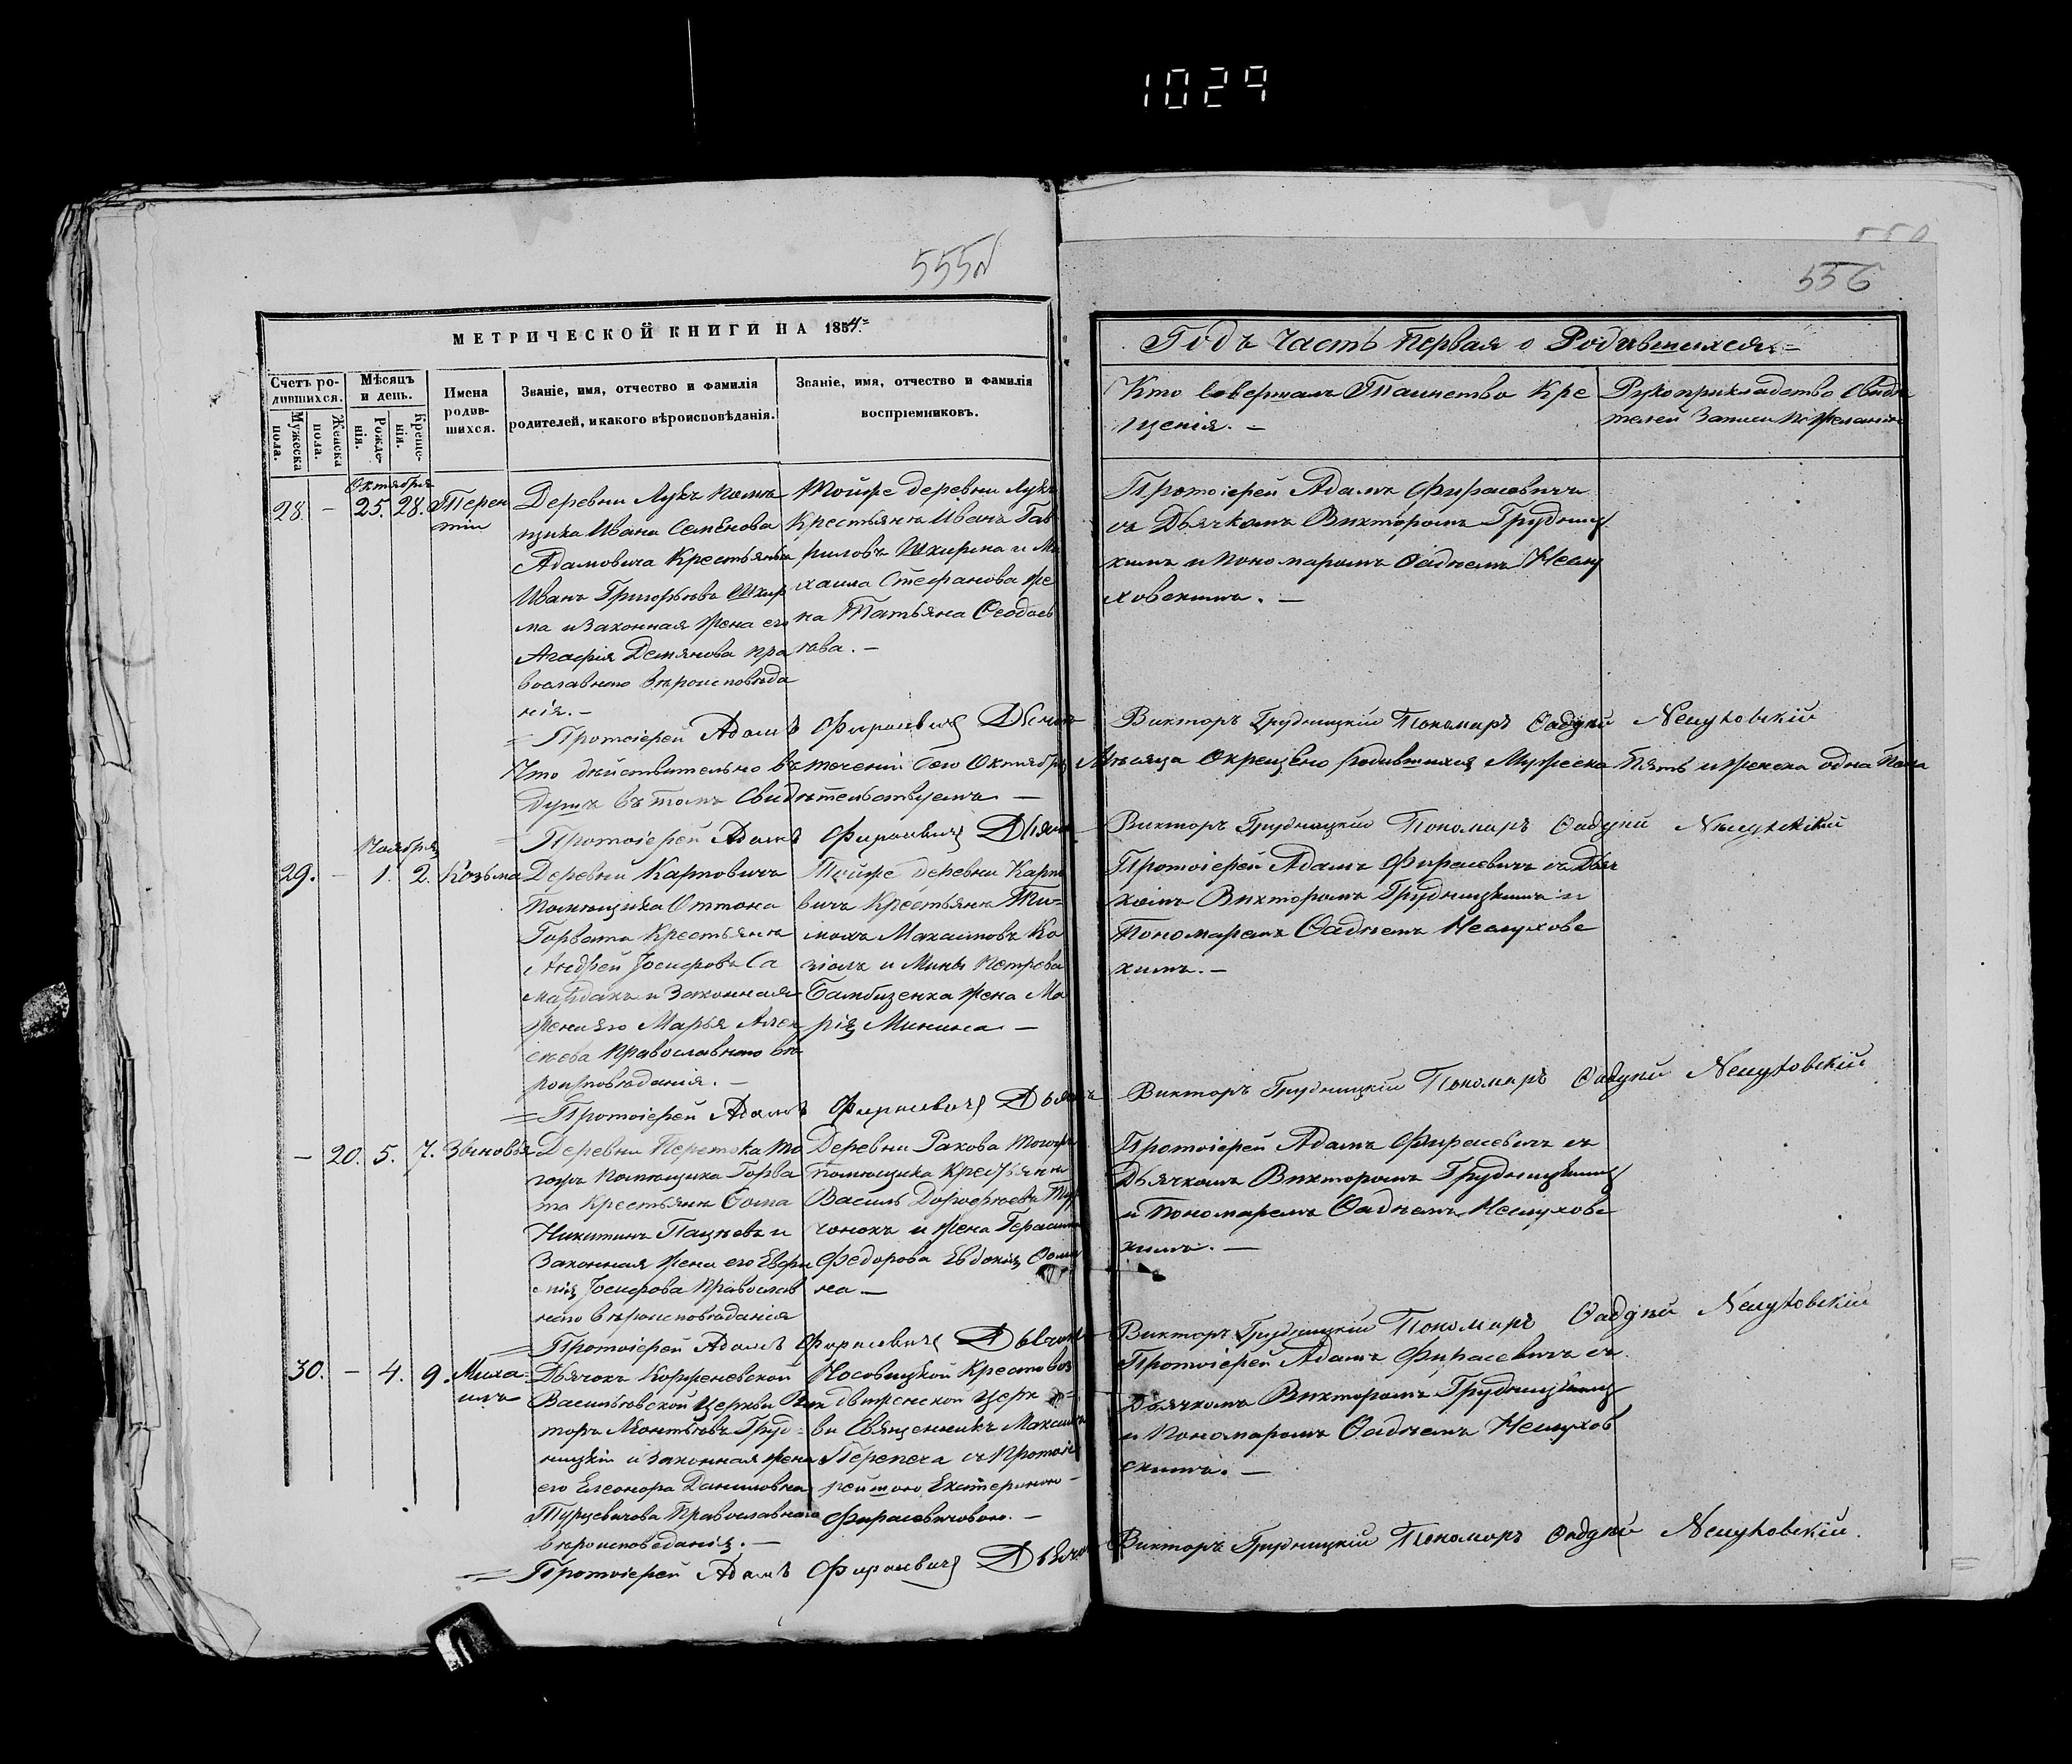 1029
555
556
МЕТРИЧЕСКОЙ КНИГИ НА 1854.
Годъ Часть Первая о Родившихся.
Счетъ ро-
дившихся.
Мужеска
пола.
Женска
пола.
Мѣсяцъ
и день.
Рожде-
нія.
Креще-
нія.
Имена
родив-
шихся.
Званіе, имя, отчество и фамилія
родителей, и какого вѣроисповѣданія.
Званіе, имя, отчество и фамилія
воспріемниковъ.
Кто совершалъ Таинство Кре
щенія. —
Рукоприкладство свидѣ
телей записи по желанію
Октября
28. — 25. 28. Терен
тій
Деревни Лукъ помѣ
щика Ивана Семенова
Адамовича Крестьянинъ
Иванъ Григорьевъ Шкир
ма и Законная жена его
Агафія Демянова пра
вославнаго вѣроисповѣда
нія. —
Тойже деревни Лукъ
Крестьянинъ Иванъ Гав
риловъ Шкирма и Ми
хаила Стефанова же
на Татьяна Ѳеодось
ева. —
Протоіерей Адамъ Фирасевичъ
съ Дьячкомъ Викторомъ Грудниц
кимъ и пономаремъ Фадѣемъ Неслу
ховскимъ. —
Протоіерей Адамъ Фирасевичъ Дьячокъ Викторъ Грудницкій Пономарь Фадѣй Неслуховскій
Что дѣйствительно въ теченіи сего Октября Мѣсяца Окрещено родившихся Мужеска пять и женска одна пола
душъ въ томъ Свидѣтельствуемъ —
Протоіерей Адамъ Фирасевичъ Дьячокъ Викторъ Грудницкій Пономарь Фадѣй Неслуховскій
Ноября
29. — 1. 2. Козьма
Деревни Карповичъ
Помѣщика Оттона
Горвата Крестьянинъ
Андрей Іосифовъ Са
мардакъ и Законная
жена его Марья Алек
сѣева Православнаго вѣ
роисповѣданія. —
Тойже деревни Карпо
вичъ Крестьянинъ Ти-
мохъ Максимовъ Ко
зіолъ и Мины Петрова
Бамбизенка жена Ма
рія Минина —
Протоіерей Адамъ Фирасевичъ съ Дьяч
комъ Викторомъ Грудницкимъ и
Пономаремъ Фадѣемъ Неслуховс
кимъ. —
Протоіерей Адамъ Фирасевичъ Дьячокъ Викторъ Грудницкій Пономарь Фадѣй Неслуховскій
— 20. 5. 7. Зѣновья
Деревни Перетока то
гожъ Помѣщика Горва
та Крестьянинъ Ѳома
Никитинъ Пацѣевъ и
Законная жена его Евфи
мія Іосифова Православ
наго вѣроисповѣданія
Деревни Ракова тогожъ
Помѣщика Крестьянинъ
Василь Дорофѣевъ Тур
чонокъ и жена Герасима
Федорова Евдокія Ѳоми
на —
Протоіерей Адамъ Фирасевичъ съ
Дьячкомъ Викторомъ Грудницкимъ
и Пономаремъ Фадѣемъ Неслуховс
кимъ. —
Протоіерей Адамъ Фирасевичъ Дьячокъ Викторъ Грудницкій Пономарь Фадѣй Неслуховскій
30. — 4. 9. Миха-
илъ
Дьячокъ Корженевской
Васильевской Церкви Вик
торъ Леонтьевъ Груд-
ницкій и Законная жена
его Елеонора Даниловна
Турцевичова Православнаго
вѣроисповеданія. —
Носовицкой Крестовоз
движенской церк-
ви Священникъ Максимъ
Терепеха съ Протоіе
рейшою Екатериною
Фирасевичовою. —
Протоіерей Адамъ Фирасевичъ съ
Дьячкомъ Викторомъ Грудницкимъ
и Пономаремъ Фадѣемъ Неслухов
скимъ. —
Протоіерей Адамъ Фирасевичъ Дьячокъ Викторъ Грудницкій Пономарь Фадѣй Неслуховскій.